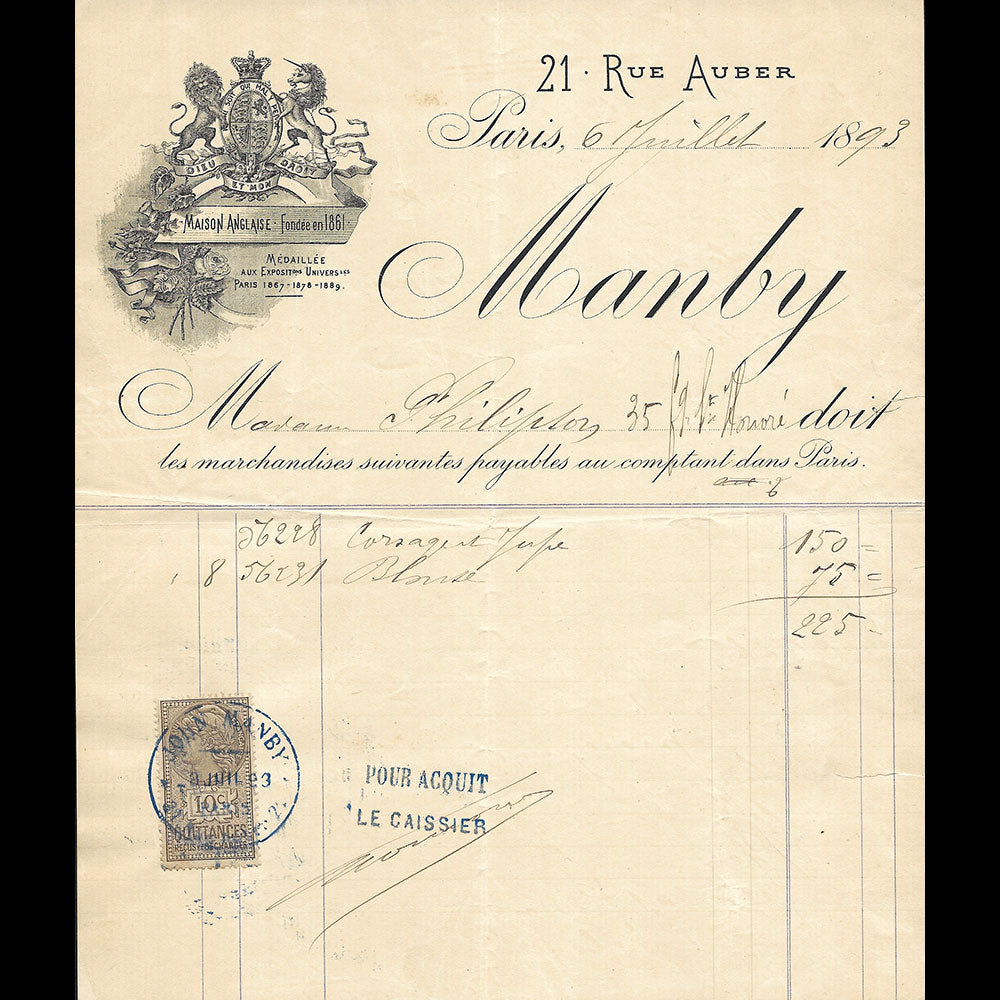 21 · RUE AUBER
Paris, 6 Juillet 1893
SOIT QUI MAL Y PENSE
DIEU ET MON DROIT
MAISON ANGLAISE · Fondée en 1861
MÉDAILLÉE
AUX EXPOSITONS UNIVERSLES
PARIS 1867-1878-1889.
Manby
Madame 35 fg St Honoré doit
les marchandises suivantes payables au comptant dans Paris.
56298 Corsage et Jupe 150 =
8 56231 Blouse 75 =
225
JOHN MANBY
JUIL 93
10c
QUITTANCES
REÇUS ET DÉCHARGES
POUR ACQUIT
LE CAISSIER